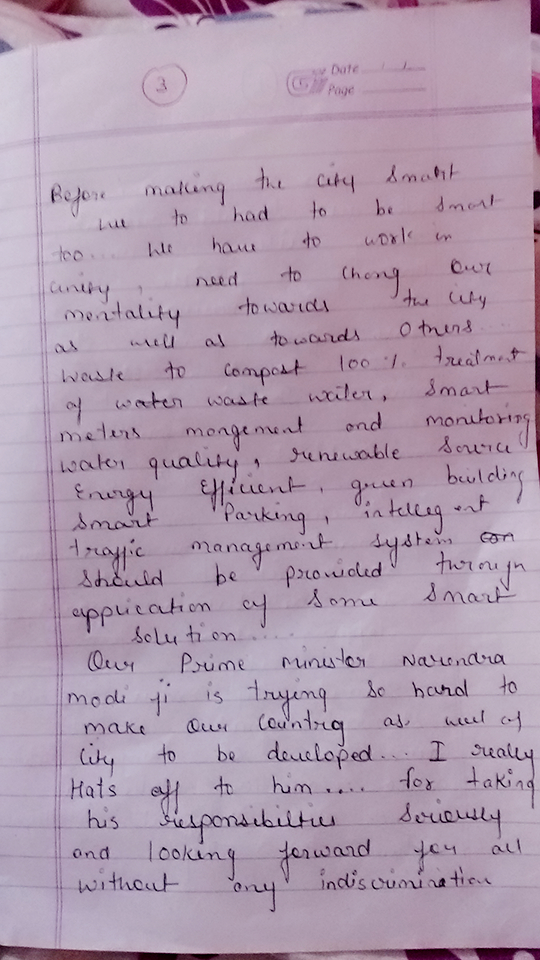 3
Date
Page
Before making the city smart
we to had to be smart
too... We have to work in
unity, need to chang our
mentality towards the city
as well as towards others...
Waste to compost 100 % treatment
of water waste water, smart
meters mangement and monitoring
water quality, renewable source
Energy Efficient, green building
smart Parking, intellegent
traffic management system
should be provided through
application of some smart
solution....
Our Prime minister Narendra
modi ji is trying so hard to
make our country as well as
city to be developed... I really
Hats off to him.... for taking
his responsibilties seriously
and looking forward for all
without any indiscrimination